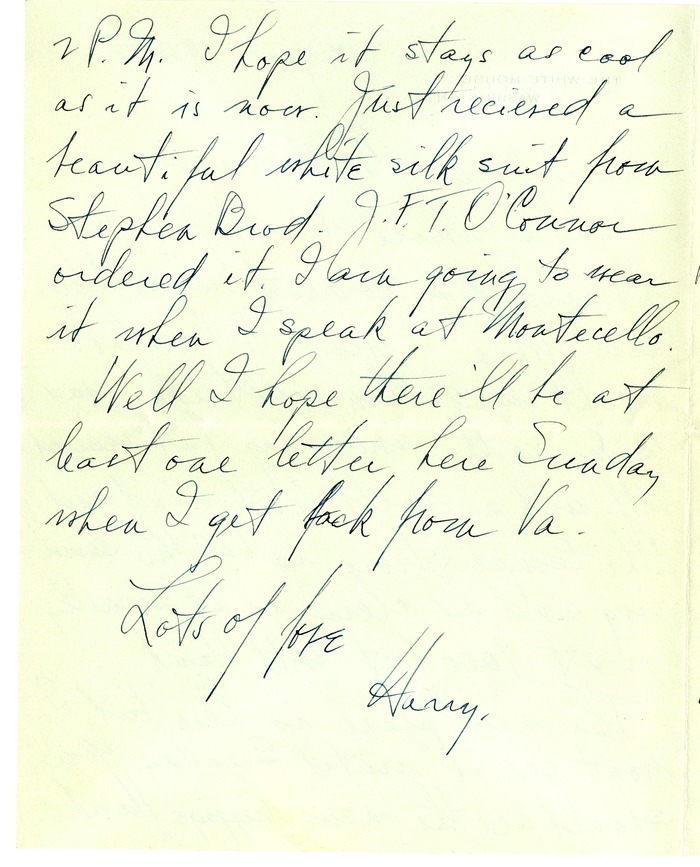 2 P.M. I hope it stays as cool
as it is now. Just recieved a
beautiful white silk suit from
Stephen Brod. J.F.T. O'Connor
ordered it. I am going to wear
it when I speak at Monticello.
Well I hope there'll be at
least one letter here Sunday
when I get back from Va.
Lots of love
Harry.